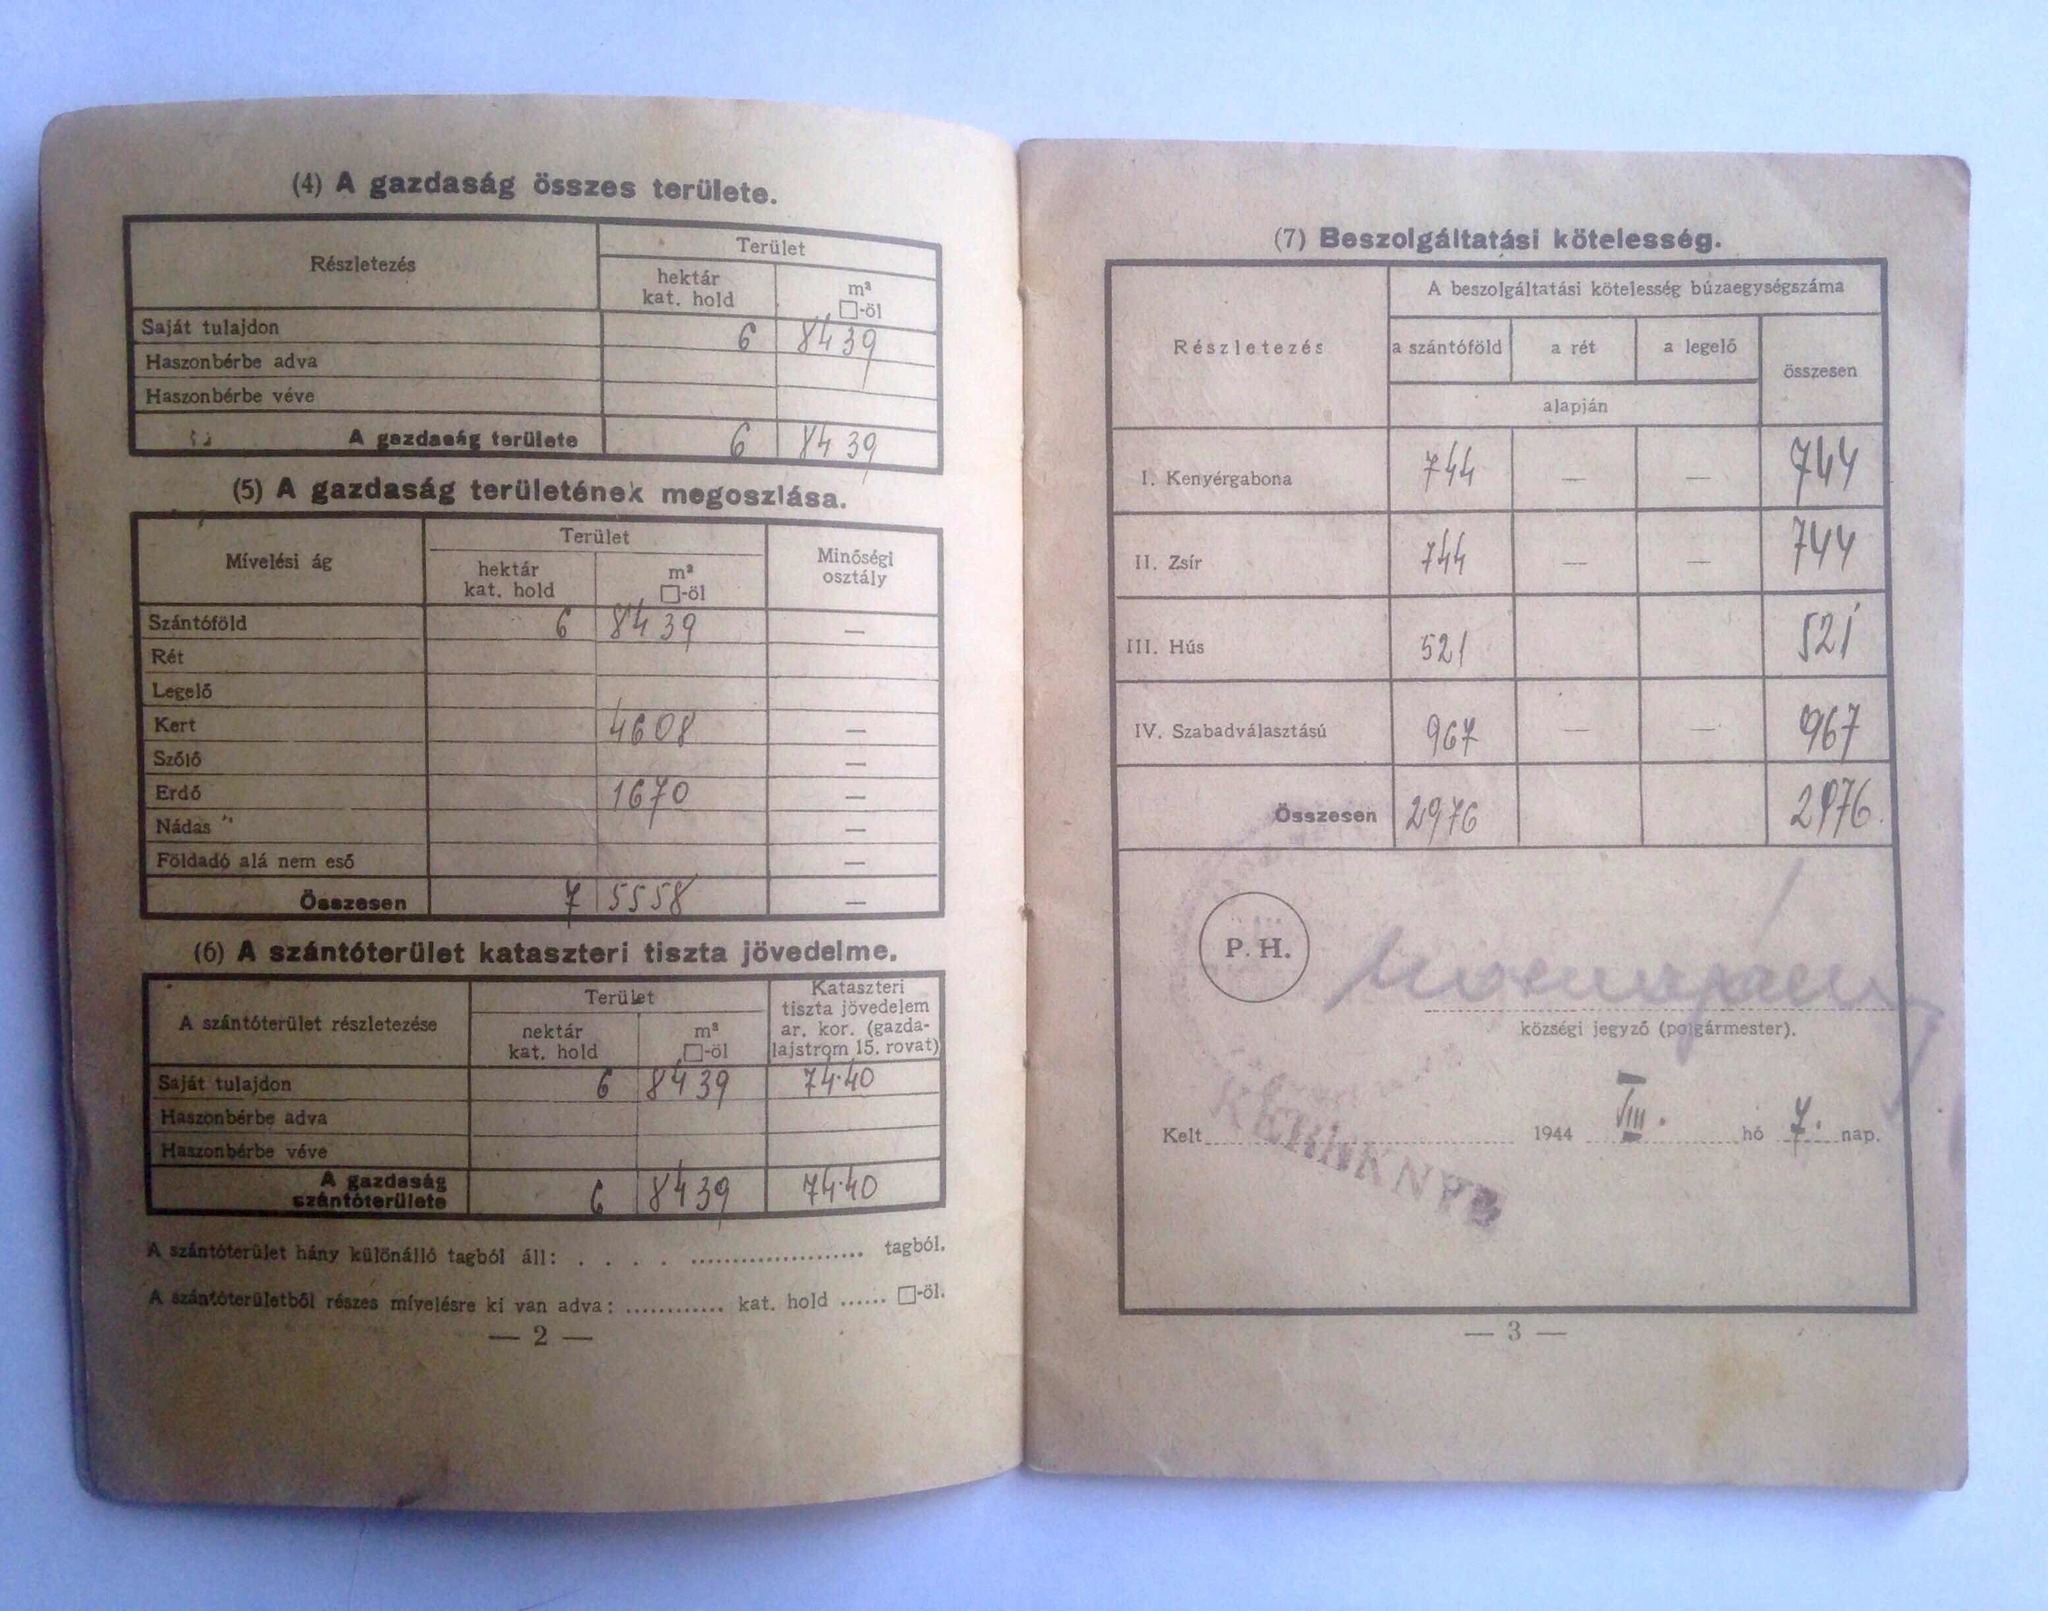 (4) A gazdaság összes területe.
Részletezés
Terület
hektár
kat. hold
m²
□-öl
Saját tulajdon 6 8439
Haszonbérbe adva
Haszonbérbe véve
A gazdaság területe 6 8439
(5) A gazdaság területének megoszlása.
Mívelési ág
Terület
hektár
kat. hold
m²
□-öl
Minőségi
osztály
Szántóföld 6 8439 —
Rét
Legelő
Kert 4608 —
Szőlő —
Erdő 1670 —
Nádas —
Földadó alá nem eső —
Összesen 7 5558 —
(6) A szántóterület kataszteri tiszta jövedelme.
A szántóterület részletezése
Terület
hektár
kat. hold
m²
□-öl
Kataszteri
tiszta jövedelem
ar. kor. (gazda-
lajstrom 15. rovat)
Saját tulajdon 6 8439 74·40
Haszonbérbe adva
Haszonbérbe véve
A gazdaság
szántóterülete 6 8439 74·40
A szántóterület hány különálló tagból áll: . . . . .................... tagból.
A szántóterületből részes mívelésre ki van adva: ............ kat. hold ...... □-öl.
— 2 —
(7) Beszolgáltatási kötelesség.
Részletezés
A beszolgáltatási kötelesség búzaegységszáma
a szántóföld a rét a legelő
összesen
alapján
I. Kenyérgabona 744 — — 744
II. Zsír 744 — — 744
III. Hús 521 521
IV. Szabadválasztású 967 — — 967
Összesen 2976 2976
P. H.
községi jegyző (polgármester).
Kelt 1944 VIII. hó 7. nap.
— 3 —